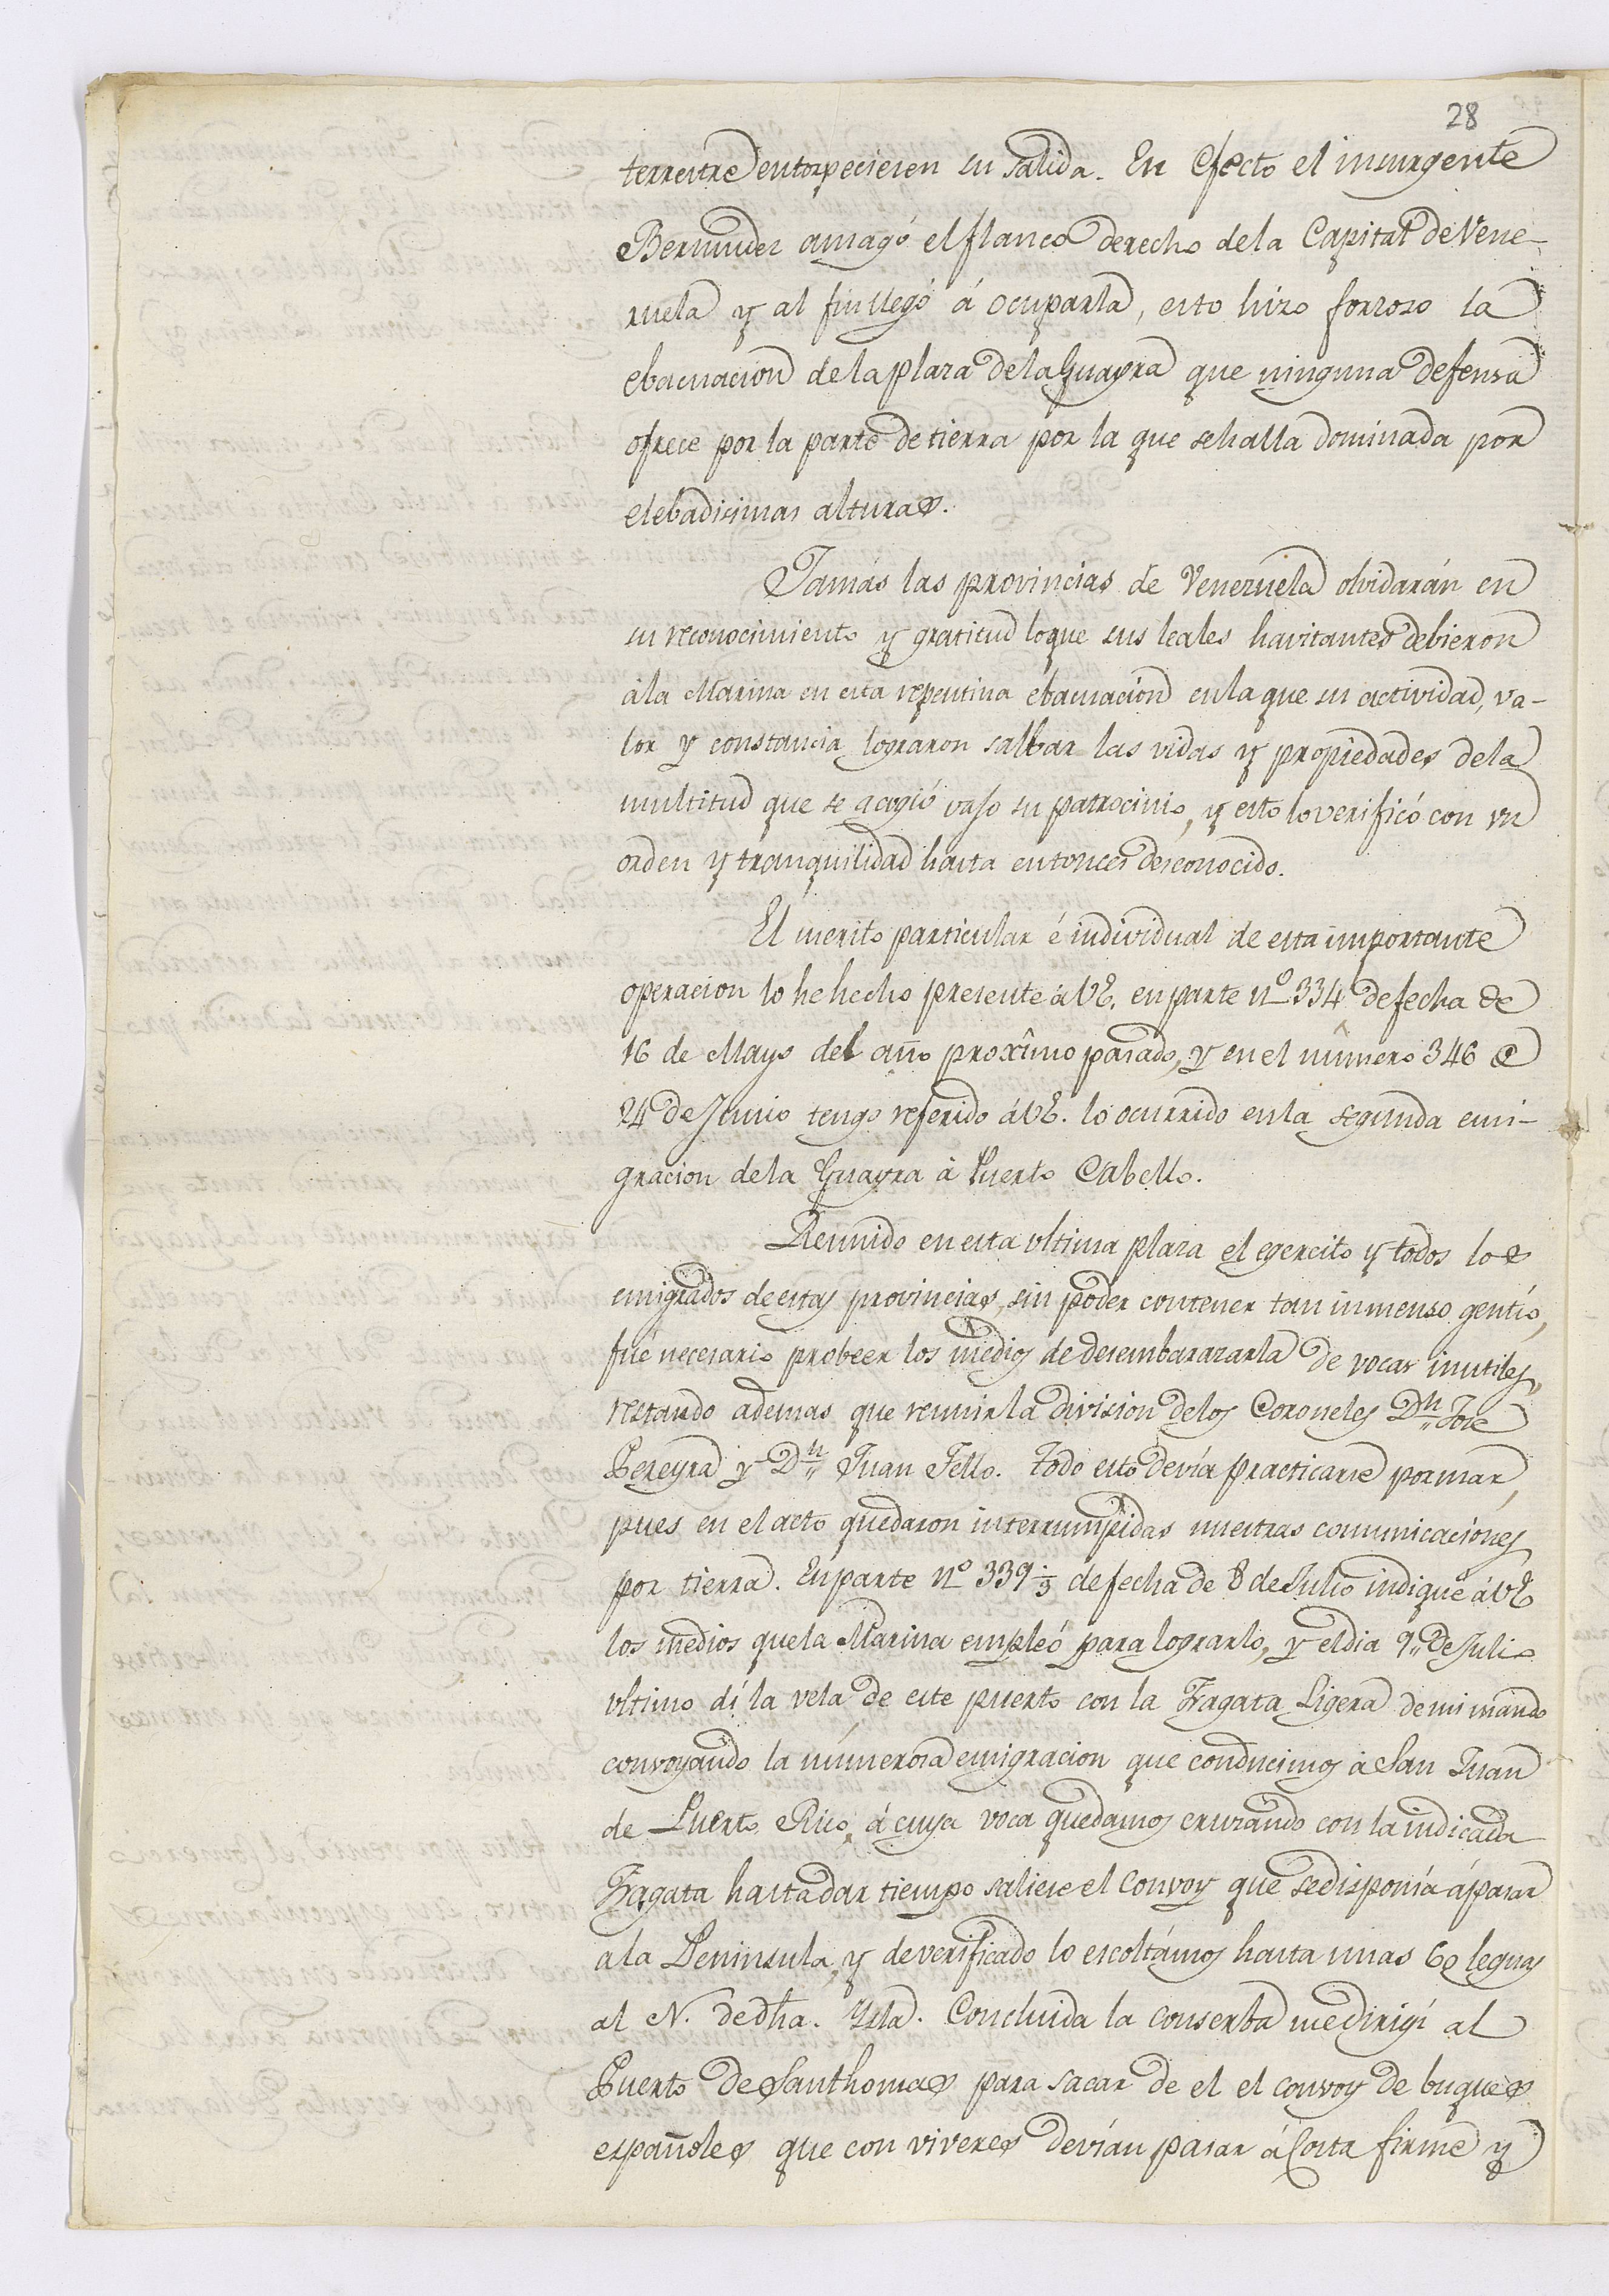 28
terrestre entorpeciesen su salida. En efecto el insurgente
Bermudez amagó el flanco derecho dela Capital de Vene-
zuela y al fin llegó á ocuparla, esto hizo forzoso la
ebacuacion dela plaza dela Guayra que ninguna defensa
ofrece por la parte de tierra por la que se halla dominada por
elebadisimas alturas.
Jamás las provincias de Venezuela olvidarán en
su reconocimiento y gratitud loque sus leales havitantes debieron
ála Marina en esta repentina ebacuacion enla que su actividad, va-
lor y constancia lograron salbar las vidas y propiedades dela
multitud que se acogió vajo su patrocinio, y esto lo verificó con un
orden y tranquilidad hasta entonces desconocido.
El merito particular é individual de esta importante
operacion lo he hecho presente á VE. en parte nº 334 de fecha de
16 de Mayo del año proxîmo pasado, y en el numero 346 @
24 de Junio tengo referido á VE. lo ocurrido enla segunda emi-
gracion dela Guayra à Puerto Cabello.
Reunido en esta ultima plaza el egercito y todos los
emigrados de estas provincias, sin poder contener tan inmenso gentío,
fué necesario probeer los medios de desembarazarla de vocas inutiles,
restando ademas que reunir la division delos Coroneles Dn. José
Pereyra y Dn. Juan Tello. Todo esto devía practicarse por mar,
pues en el acto quedaron interrumpidas nuestras comunicaciónes
por tierra. En parte nº 339 de fecha de 8 de Julio indiqué á VE
los medios quela Marina empleó para lograrlo, y el dia 9 de Julio
ultimo dí la vela de este puerto con la Fragata Ligera de mi mando
convoyando la númerosa emigracion que conducimos à San Juan
de Puerto Rico, á cuya voca quedamos cruzando con la indicada
Fragata hasta dar tiempo saliese el convoy que se disponía á pasar
a la Peninsula, y deverificado lo escoltámos hasta unas 60 leguas
al N. de dha. Ysla. Concluida la conserba me dirigí al
Puerto de Santhomas para sacar de el el convoy de buques
españoles que con viveres devían pasar á Costa firme y